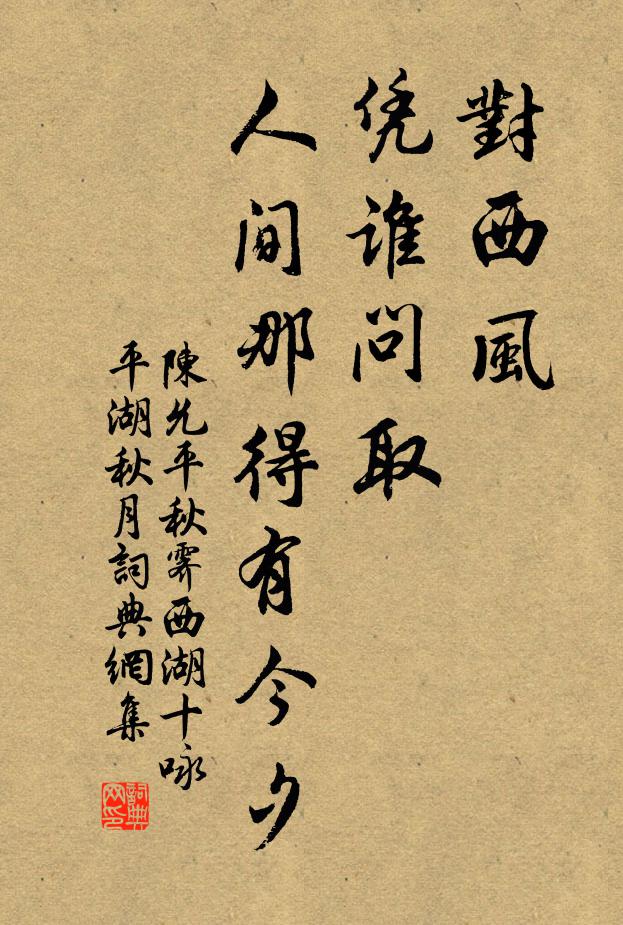 對西風
凭誰問取
人間那得有今夕
陳允平秋霽西湖十咏
平湖秋月詞典網集
詞典
网印